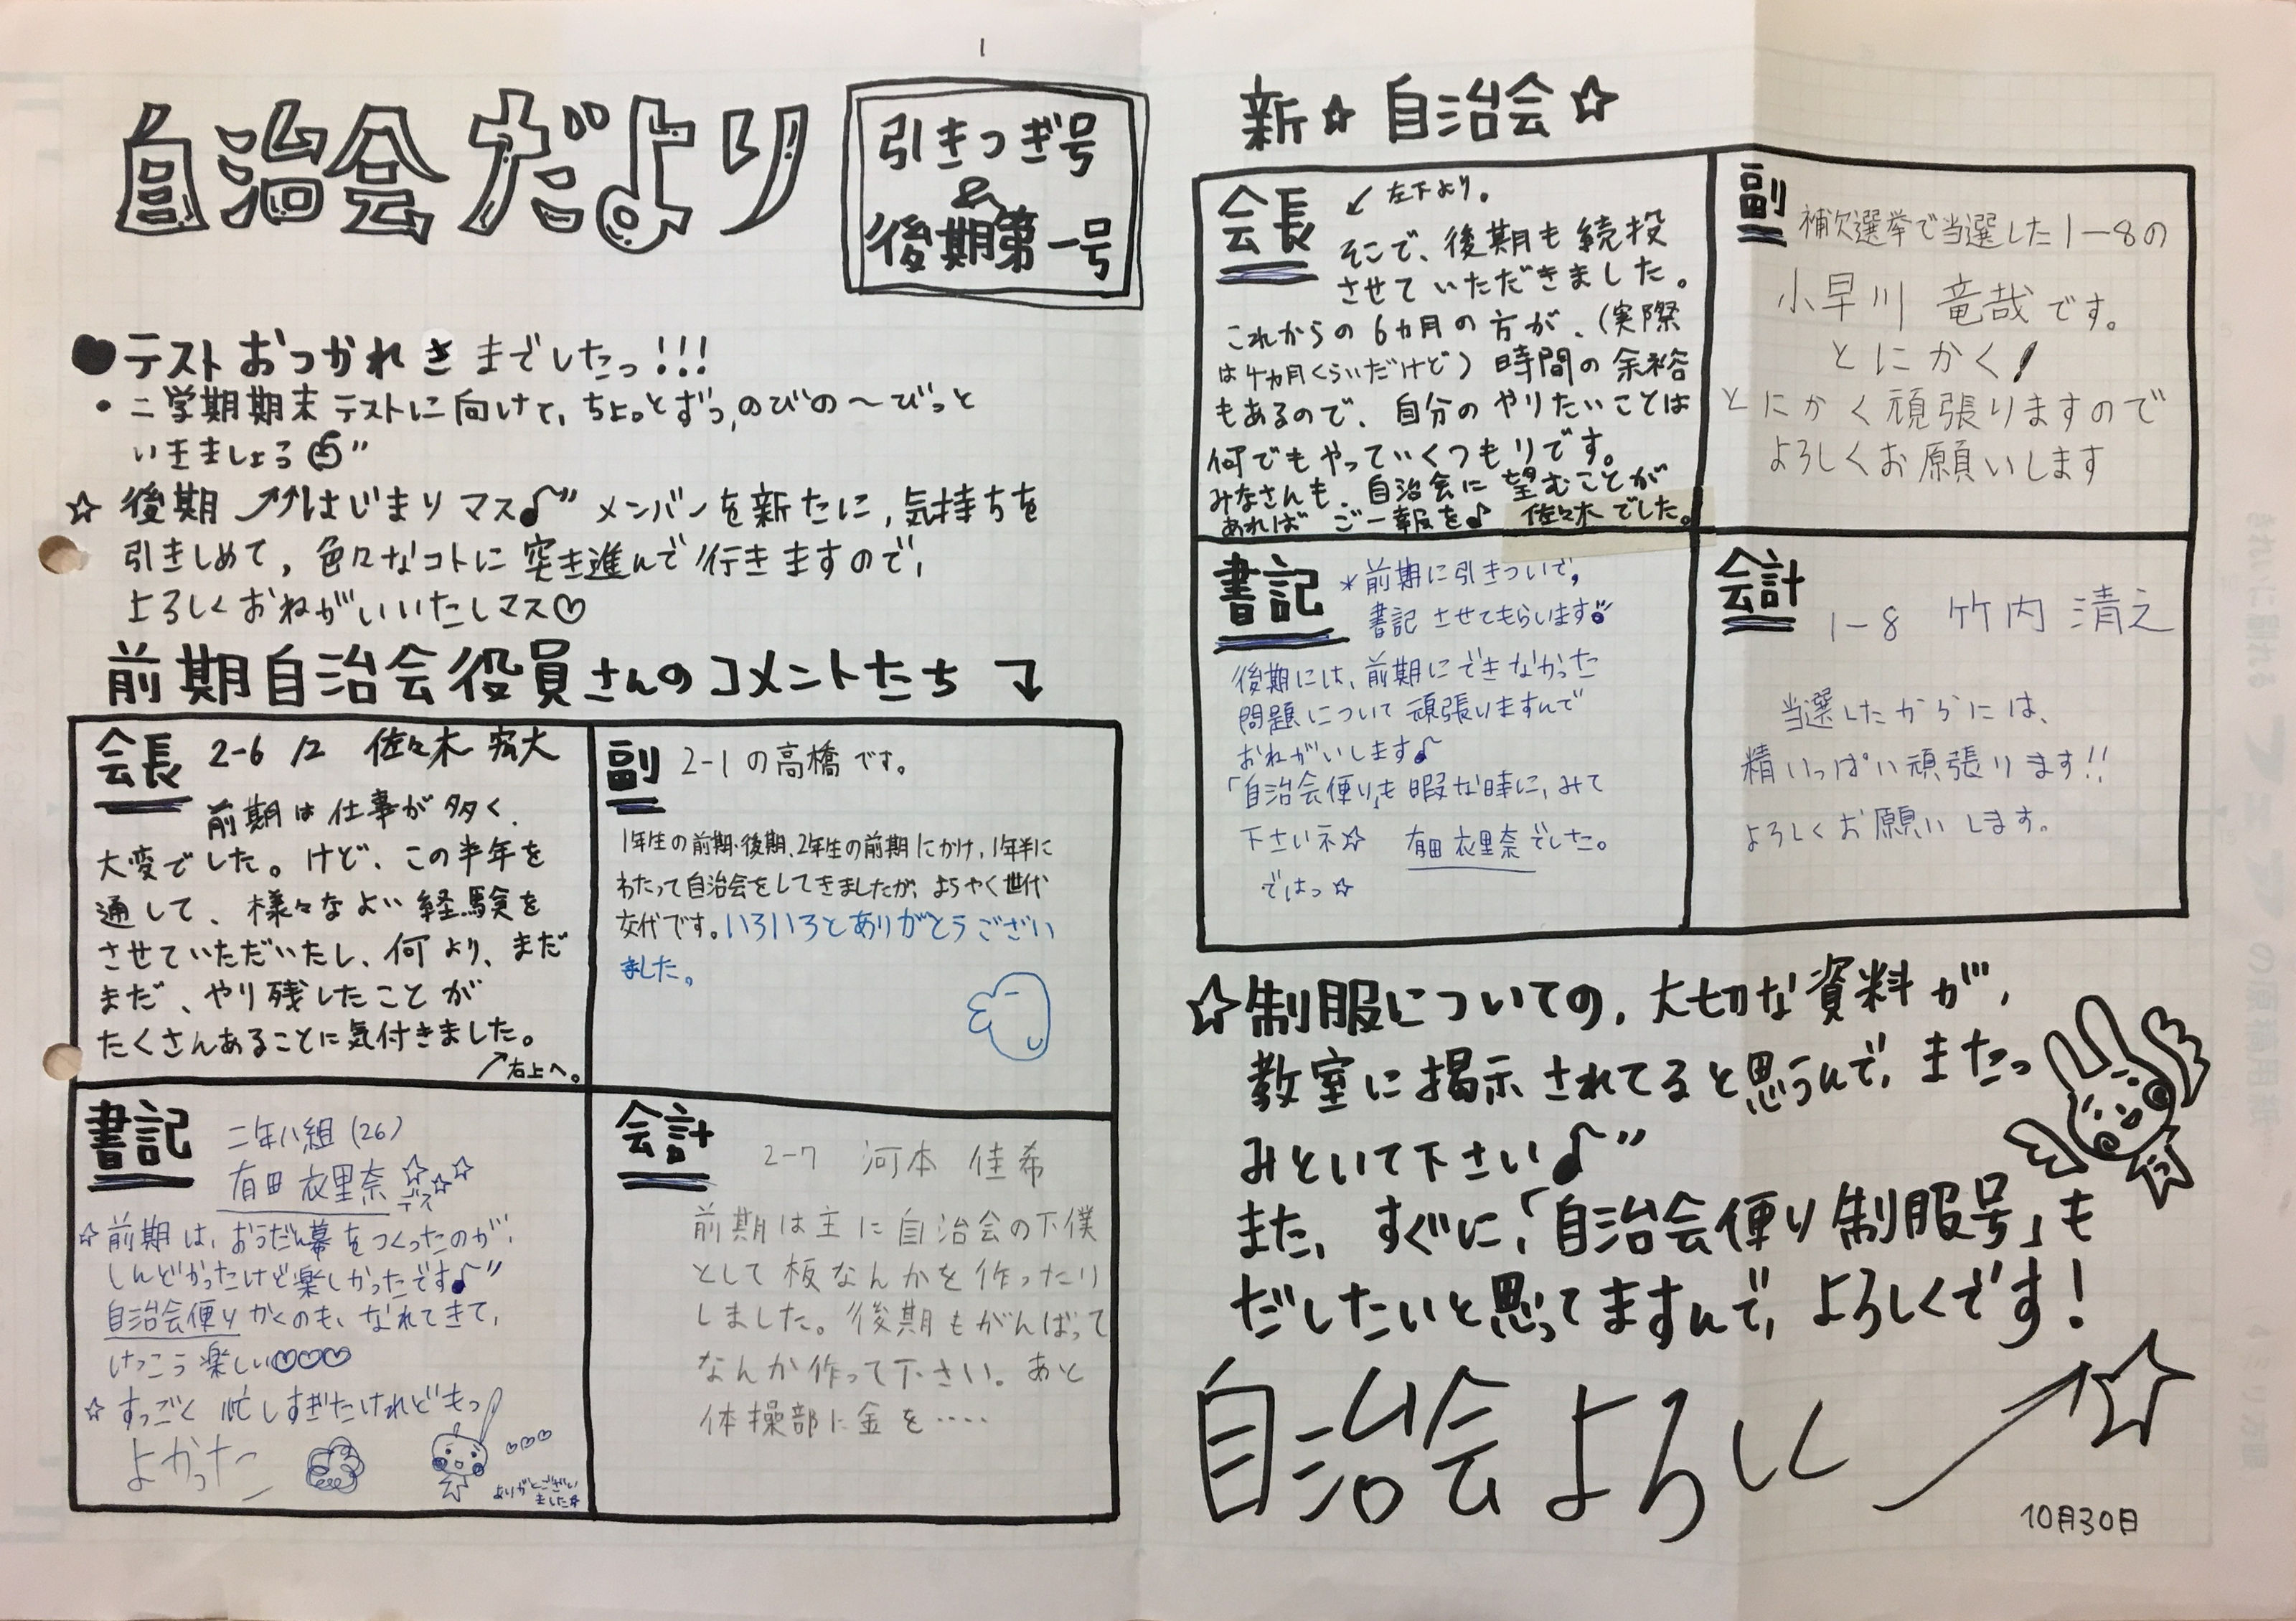 自治会だより
引きつぎ号
&
後期第一号
●テストおつかれさまでしたっ!!!
・二学期期末テストに向けて、ちょっとずつ、のびの〜びっと
いきましょろ
☆後期 はじまりマス♪" メンバーを新たに、気持ちを
引きしめて、色々なコトに突き進んで行きますので、
よろしくおねがいいたしマス♡
前期自治会役員さんのコメントたち
会長 2-6 12 佐々木 宏大
前期は仕事が多く、
大変でした。けど、この半年を
通して、様々なよい経験を
させていただいたし、何より、まだ
まだ、やり残したことが
たくさんあることに気付きました。
↗右上へ。
副 2-1の高橋です。
1年生の前期・後期、2年生の前期にかけ、1年半に
わたって自治会をしてきましたが、ようやく世代
交代です。いろいろとありがとうござい
ました。
書記 二年八組(26)
有田 衣里奈☆☆☆
デス
☆前期は、おうだん幕をつくったのが、
しんどかったけど楽しかったです♪"
自治会便りかくのも、なれてきて、
けっこう楽しい♡♡♡
☆すっごく忙しすぎたけれどもっ
よかったー
♡♡♡
ありがとうござい
ました☆
会計 2-7 河本 佳希
前期は主に自治会の下僕
として板なんかを作ったり
しました。後期もがんばって
なんか作って下さい。あと
体操部に金を‥‥
新☆自治会☆
会長 ↙左下より。
そこで、後期も続投
させていただきました。
これからの6カ月の方が、(実際
は4カ月くらいだけど)時間の余裕
もあるので、自分のやりたいことは
何でもやっていくつもりです。
みなさんも、自治会に望むことが
あればご一報を♪ 佐々木でした。
副 補欠選挙で当選した1-8の
小早川 竜哉です。
とにかく!
とにかく頑張りますので
よろしくお願いします
書記 *前期に引きついで、
書記させてもらいます
後期には、前期にできなかった
問題について頑張りますんで
おねがいします♪
「自治会便り」も暇な時に、みて
下さいネ☆ 有田 衣里奈でした。
ではっ☆
会計
1-8 竹内 清之
当選したからには、
精いっぱい頑張ります!!
よろしくお願いします。
☆制服についての、大切な資料が、
教室に掲示されてると思うんで、またっ
みといて下さい♪"
また、すぐに、「自治会便り制服号」も
だしたいと思ってますんで、よろしくです!
自治会よろしく→☆
10月30日